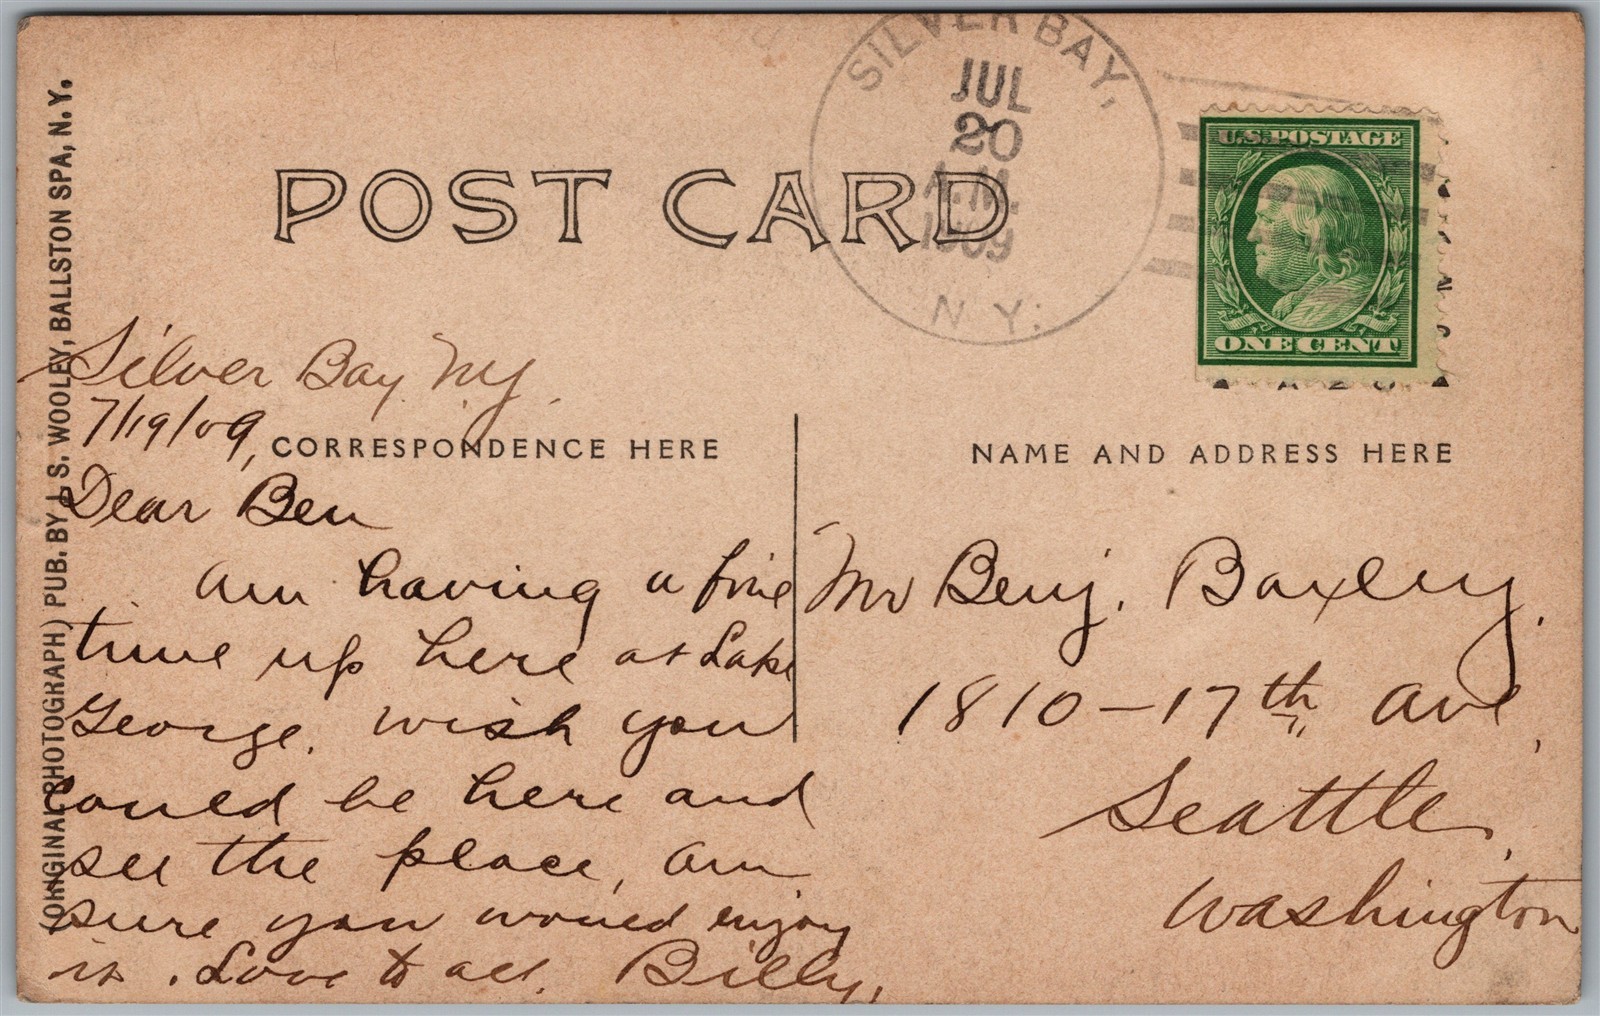 SILVER BAY,
JUL
20
A.M.
1909
N.Y.
U.S. POSTAGE
ONE CENT
POST CARD
(ORIGINAL PHOTOGRAPH) PUB. BY J. S. WOOLEY, BALLSTON SPA, N. Y.
CORRESPONDENCE HERE
NAME AND ADDRESS HERE
Silver Bay Ny.
7/19/09,
Dear Ben
Am having a fine
time up here at Lake
George. Wish you
could be here and
see the place, am
sure you would enjoy
it. Love to all. Billy,
Mr Benj. Boxley.
1810-17th Ave,
Seattle,
Washington